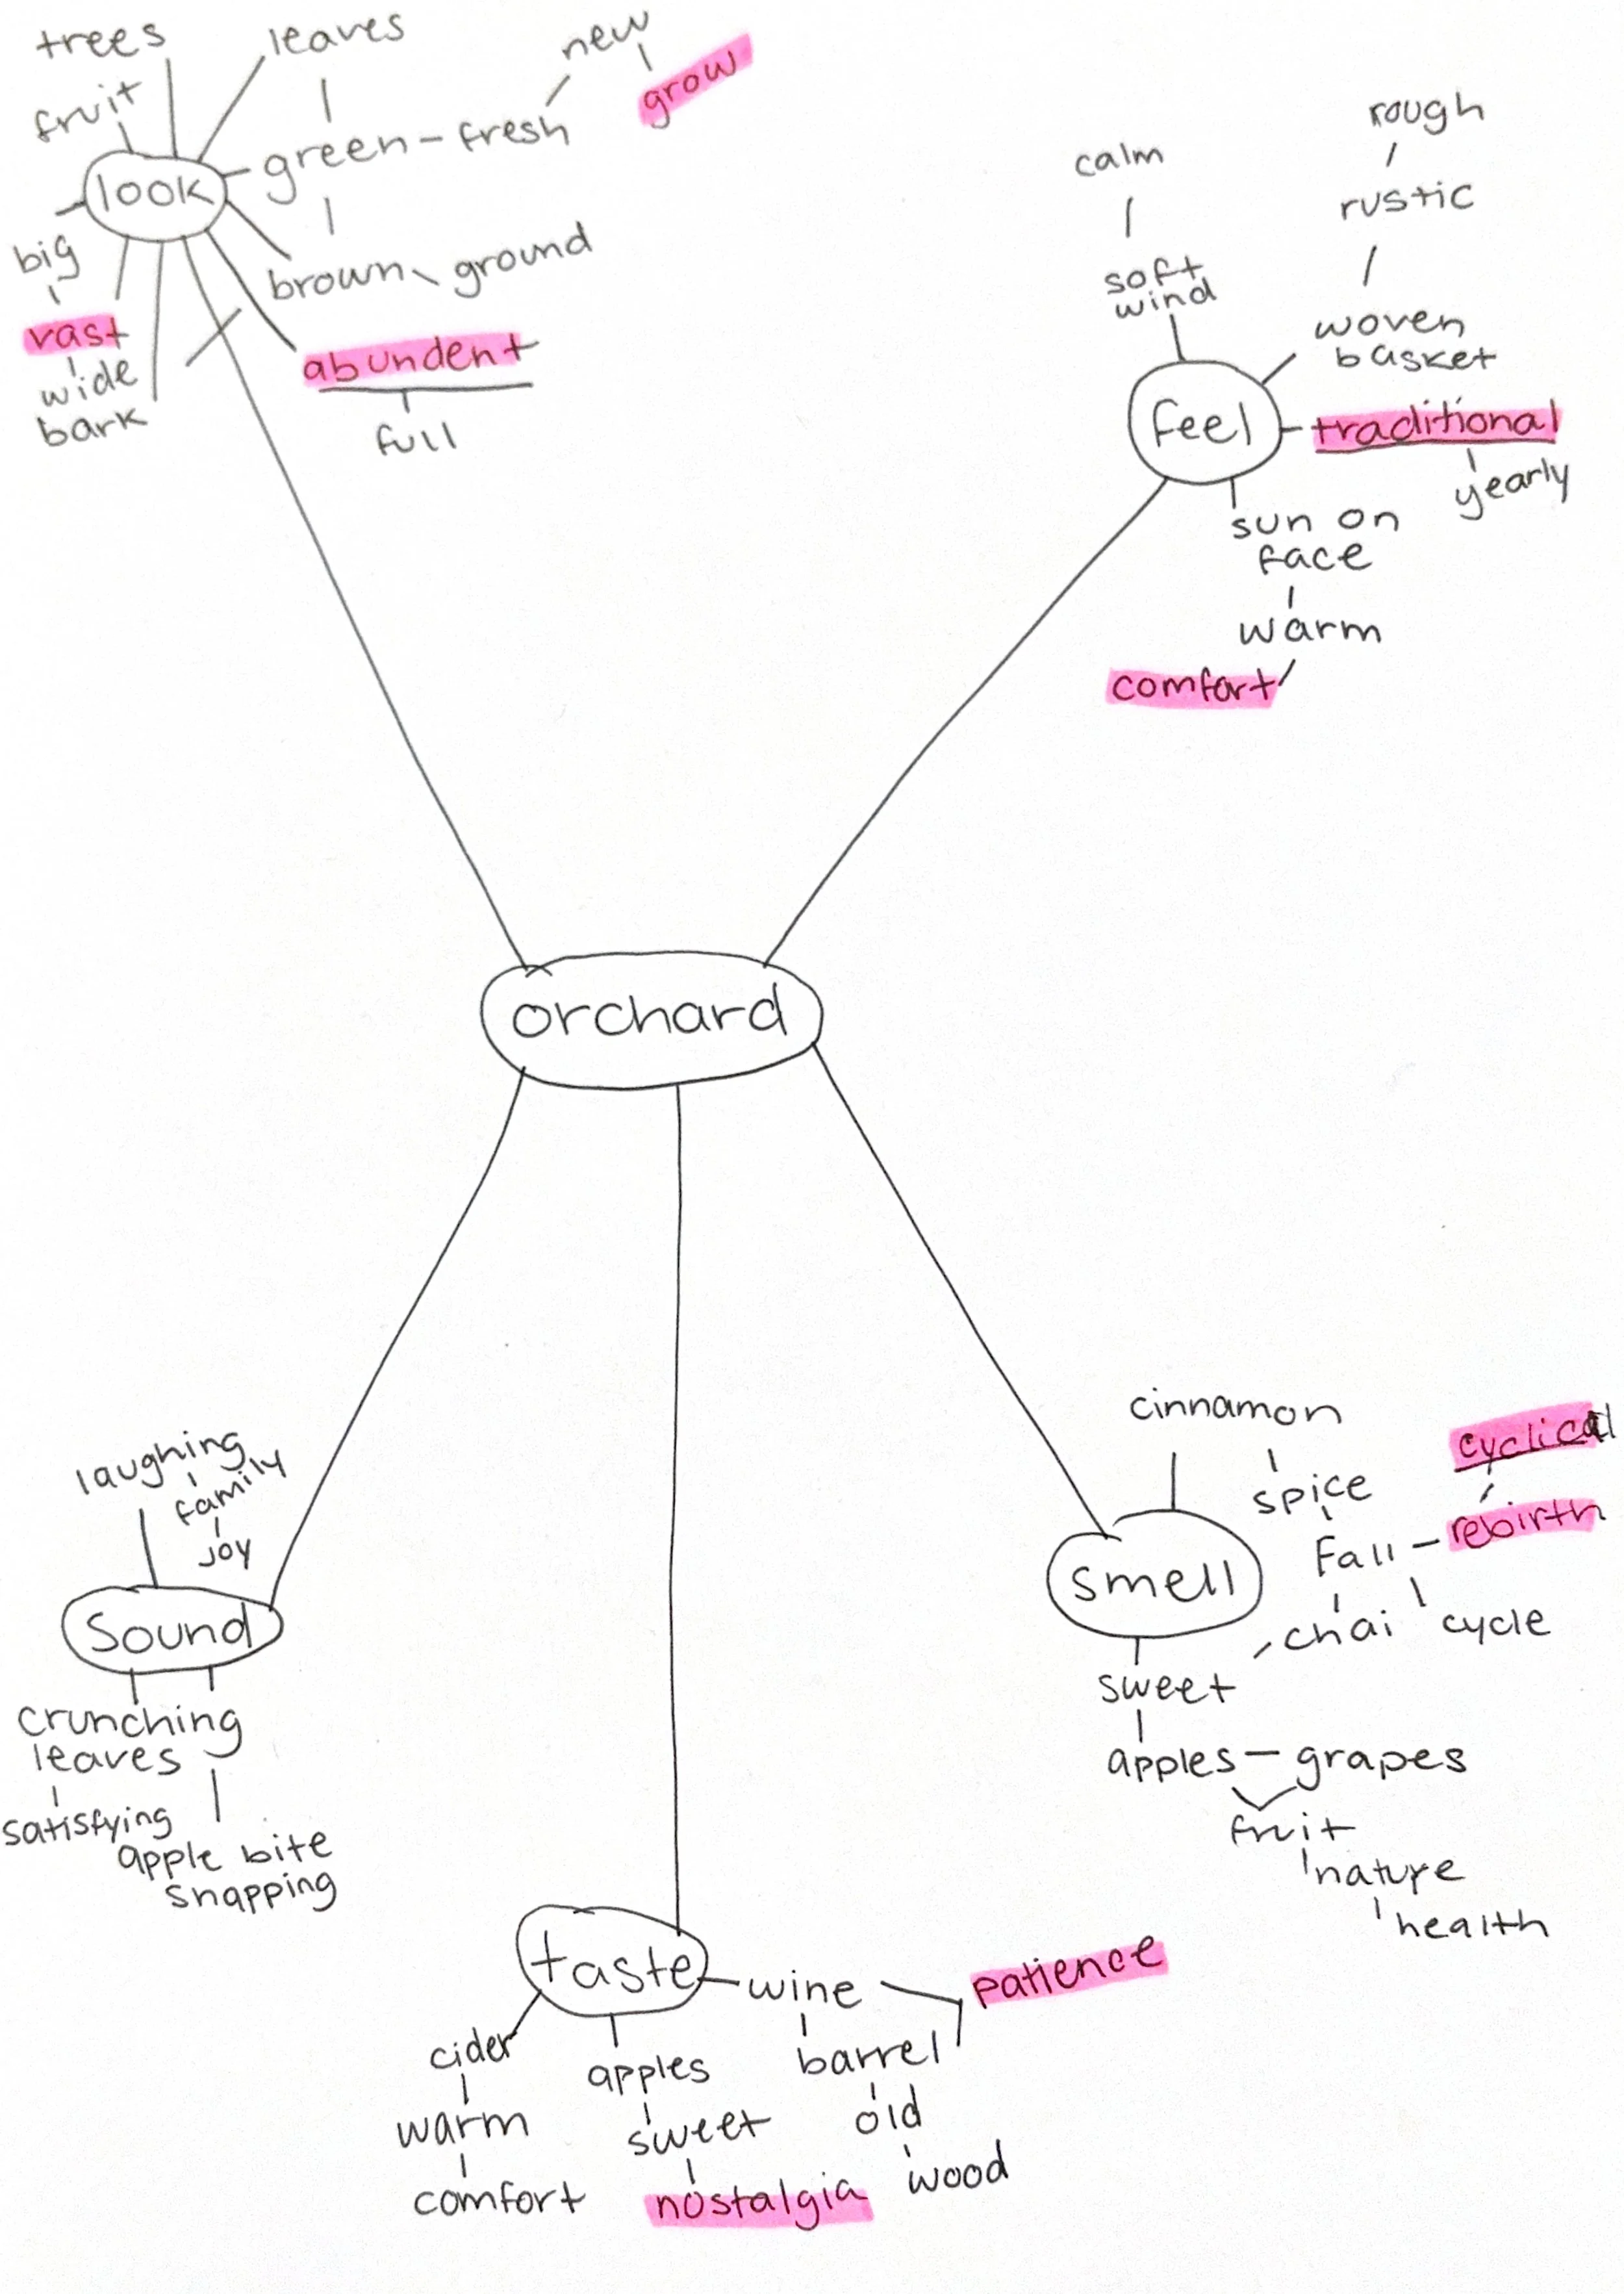 trees
leaves
new
grow
fruit
green - fresh
look
big
brown
ground
vast
wide
bark
abundent
full
calm
rough
rustic
soft
wind
woven
basket
feel
traditional
yearly
sun on
face
warm
comfort
orchard
laughing
family
joy
sound
crunching
leaves
satisfying
apple bite
snapping
cinnamon
spice
cyclical
rebirth
Fall
smell
chai
cycle
sweet
apples - grapes
fruit
nature
health
taste
wine
patience
cider
warm
comfort
apples
sweet
nostalgia
barrel
old
wood